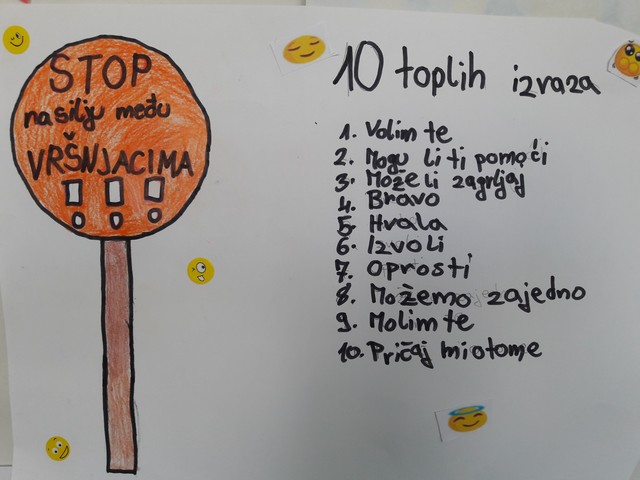 STOP
nasilju među
VRŠNJACIMA
!!!
10 toplih izraza
1. Volim te
2. Mogu li ti pomoći
3. Može li zagrljaj
4. Bravo
5. Hvala
6. Izvoli
7. Oprosti
8. Možemo zajedno
9. Molim te
10. Pričaj mi otome